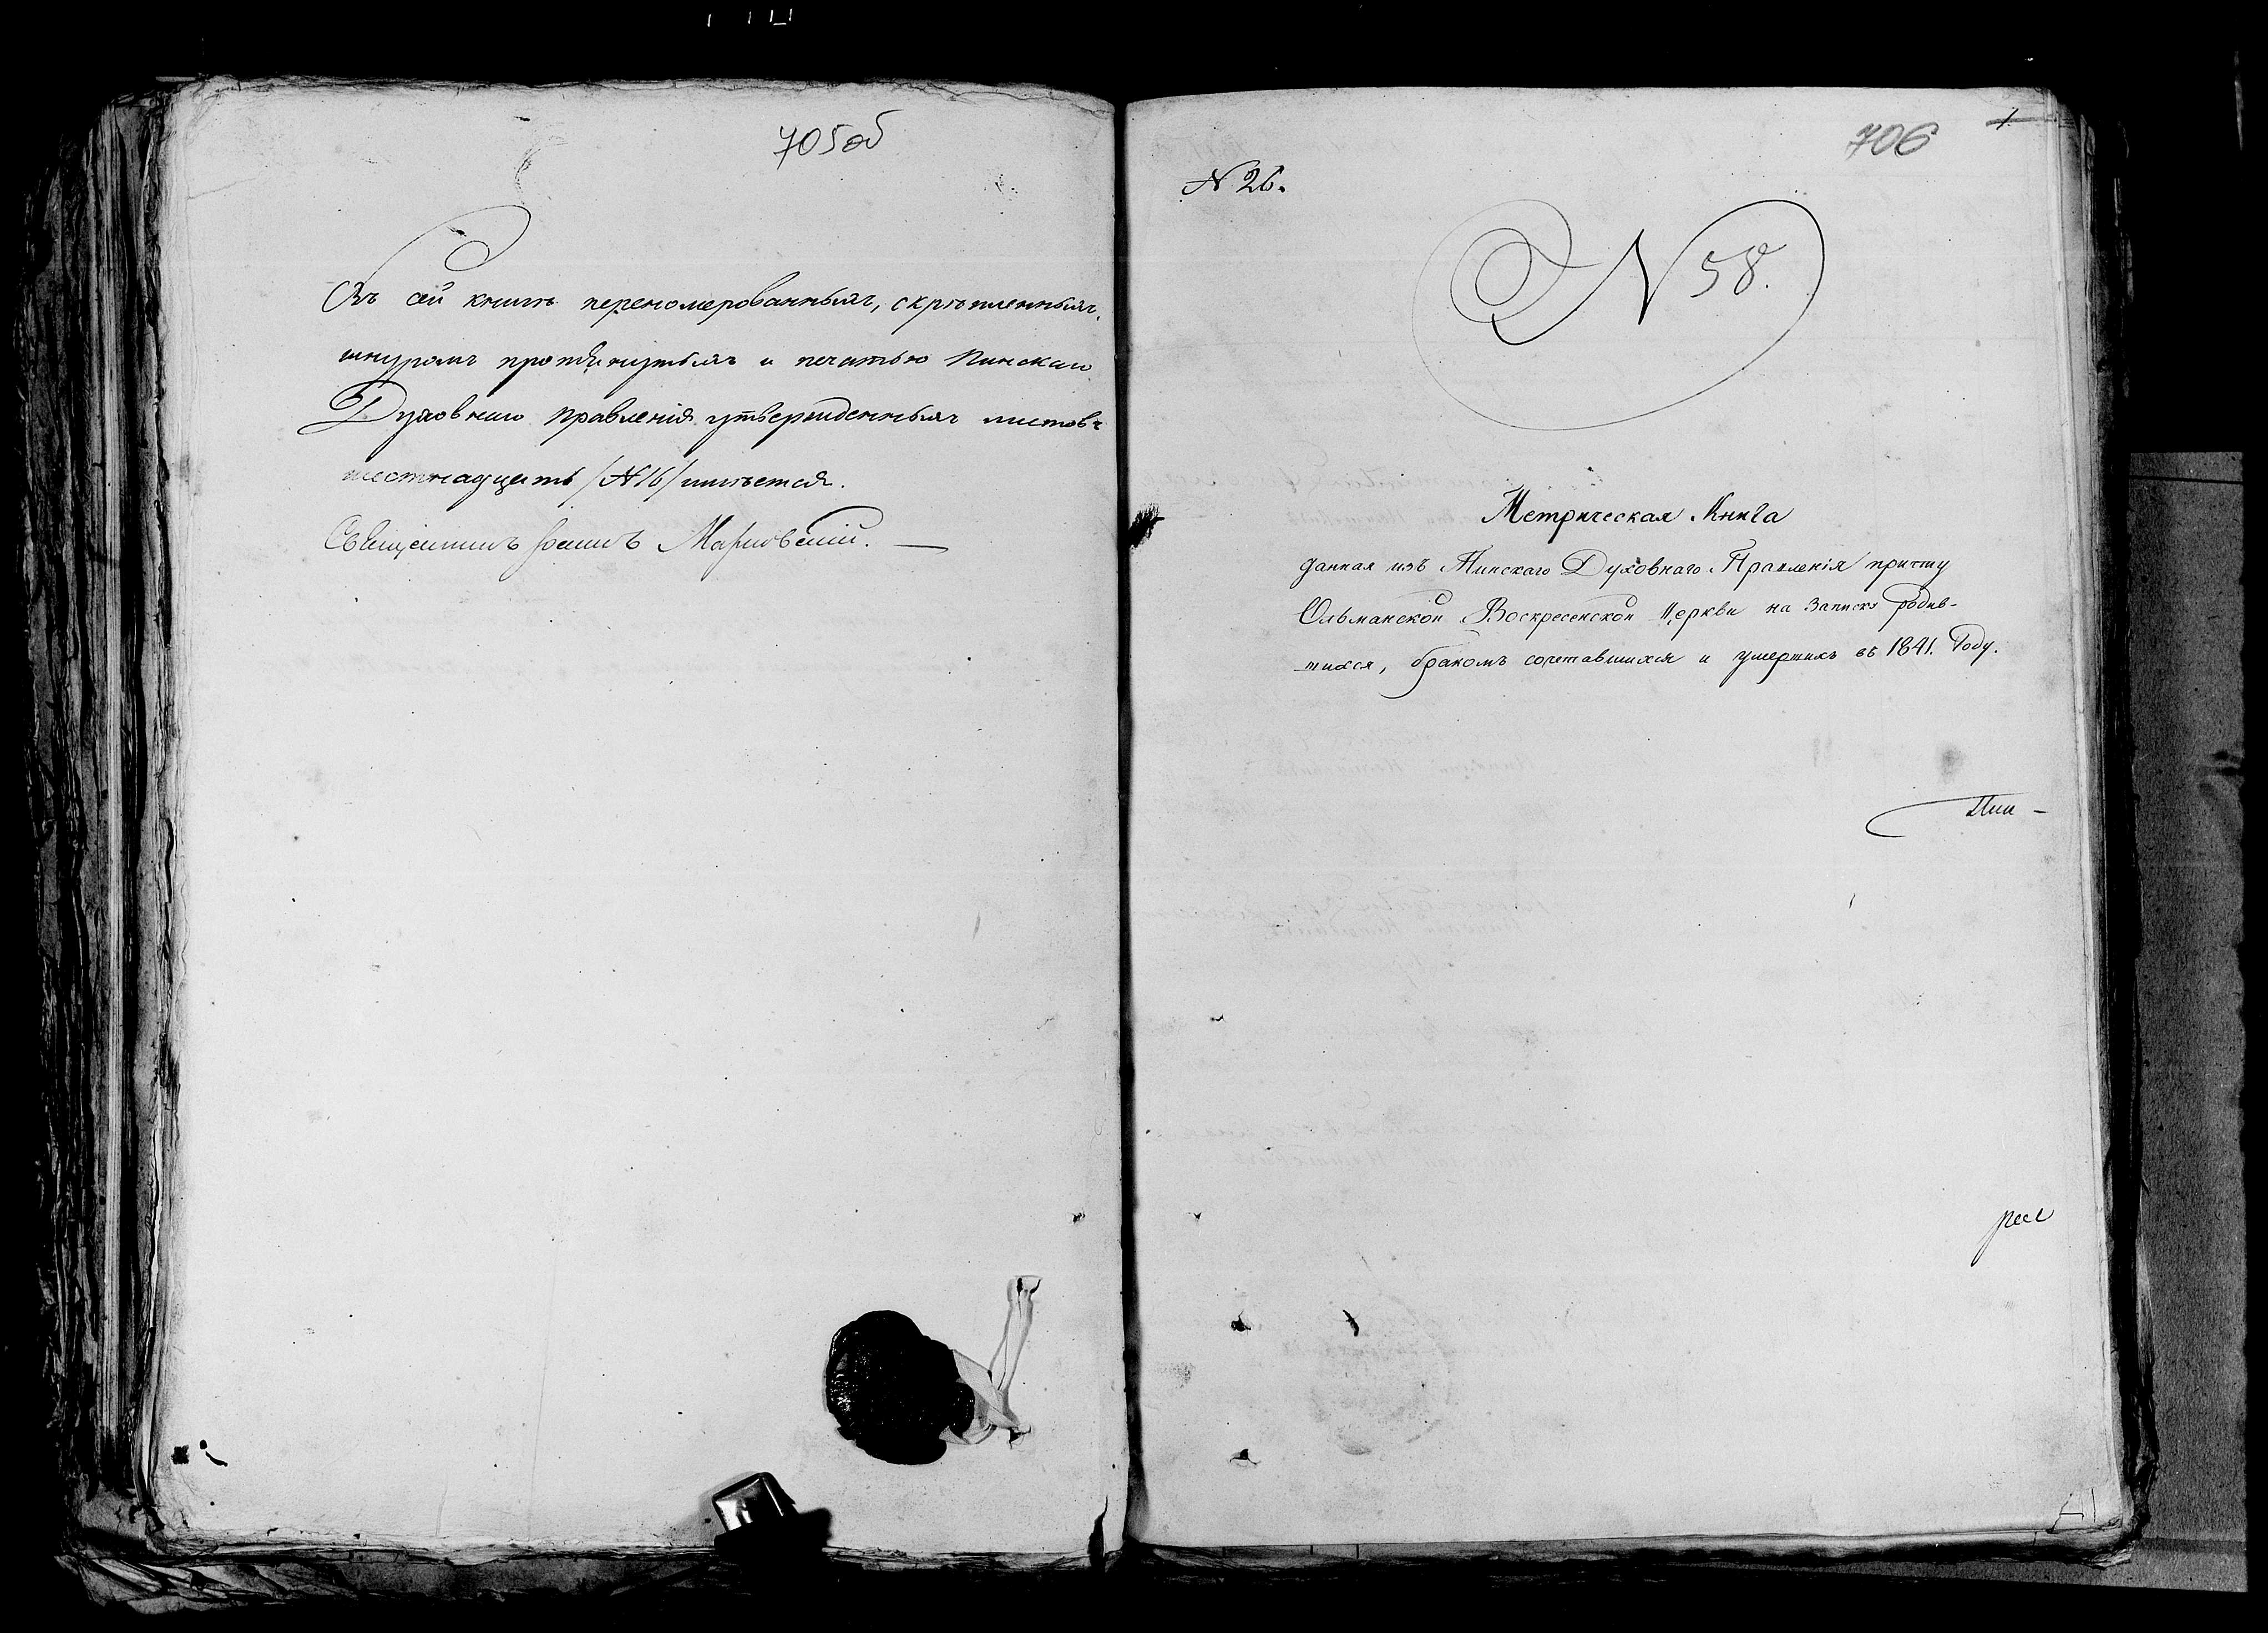 705об
Въ сей книгѣ переномерованныхъ, скрѣпленныхъ,
шнуромъ протянутыхъ и печатью Пинскаго
Духовнаго Правленія утвержденныхъ листовъ
шестнадцать /№ 16/ имѣется.
Священникъ Марковскій. —
706
1.
№ 26.
№ 58.
Метрическая Книга
данная изъ Пинскаго Духовнаго Правленія причту
Ольманской Воскресенской Церкви на записку родив-
шихся, бракомъ сочетавшихся и умершихъ въ 1841. Году.
Пин-